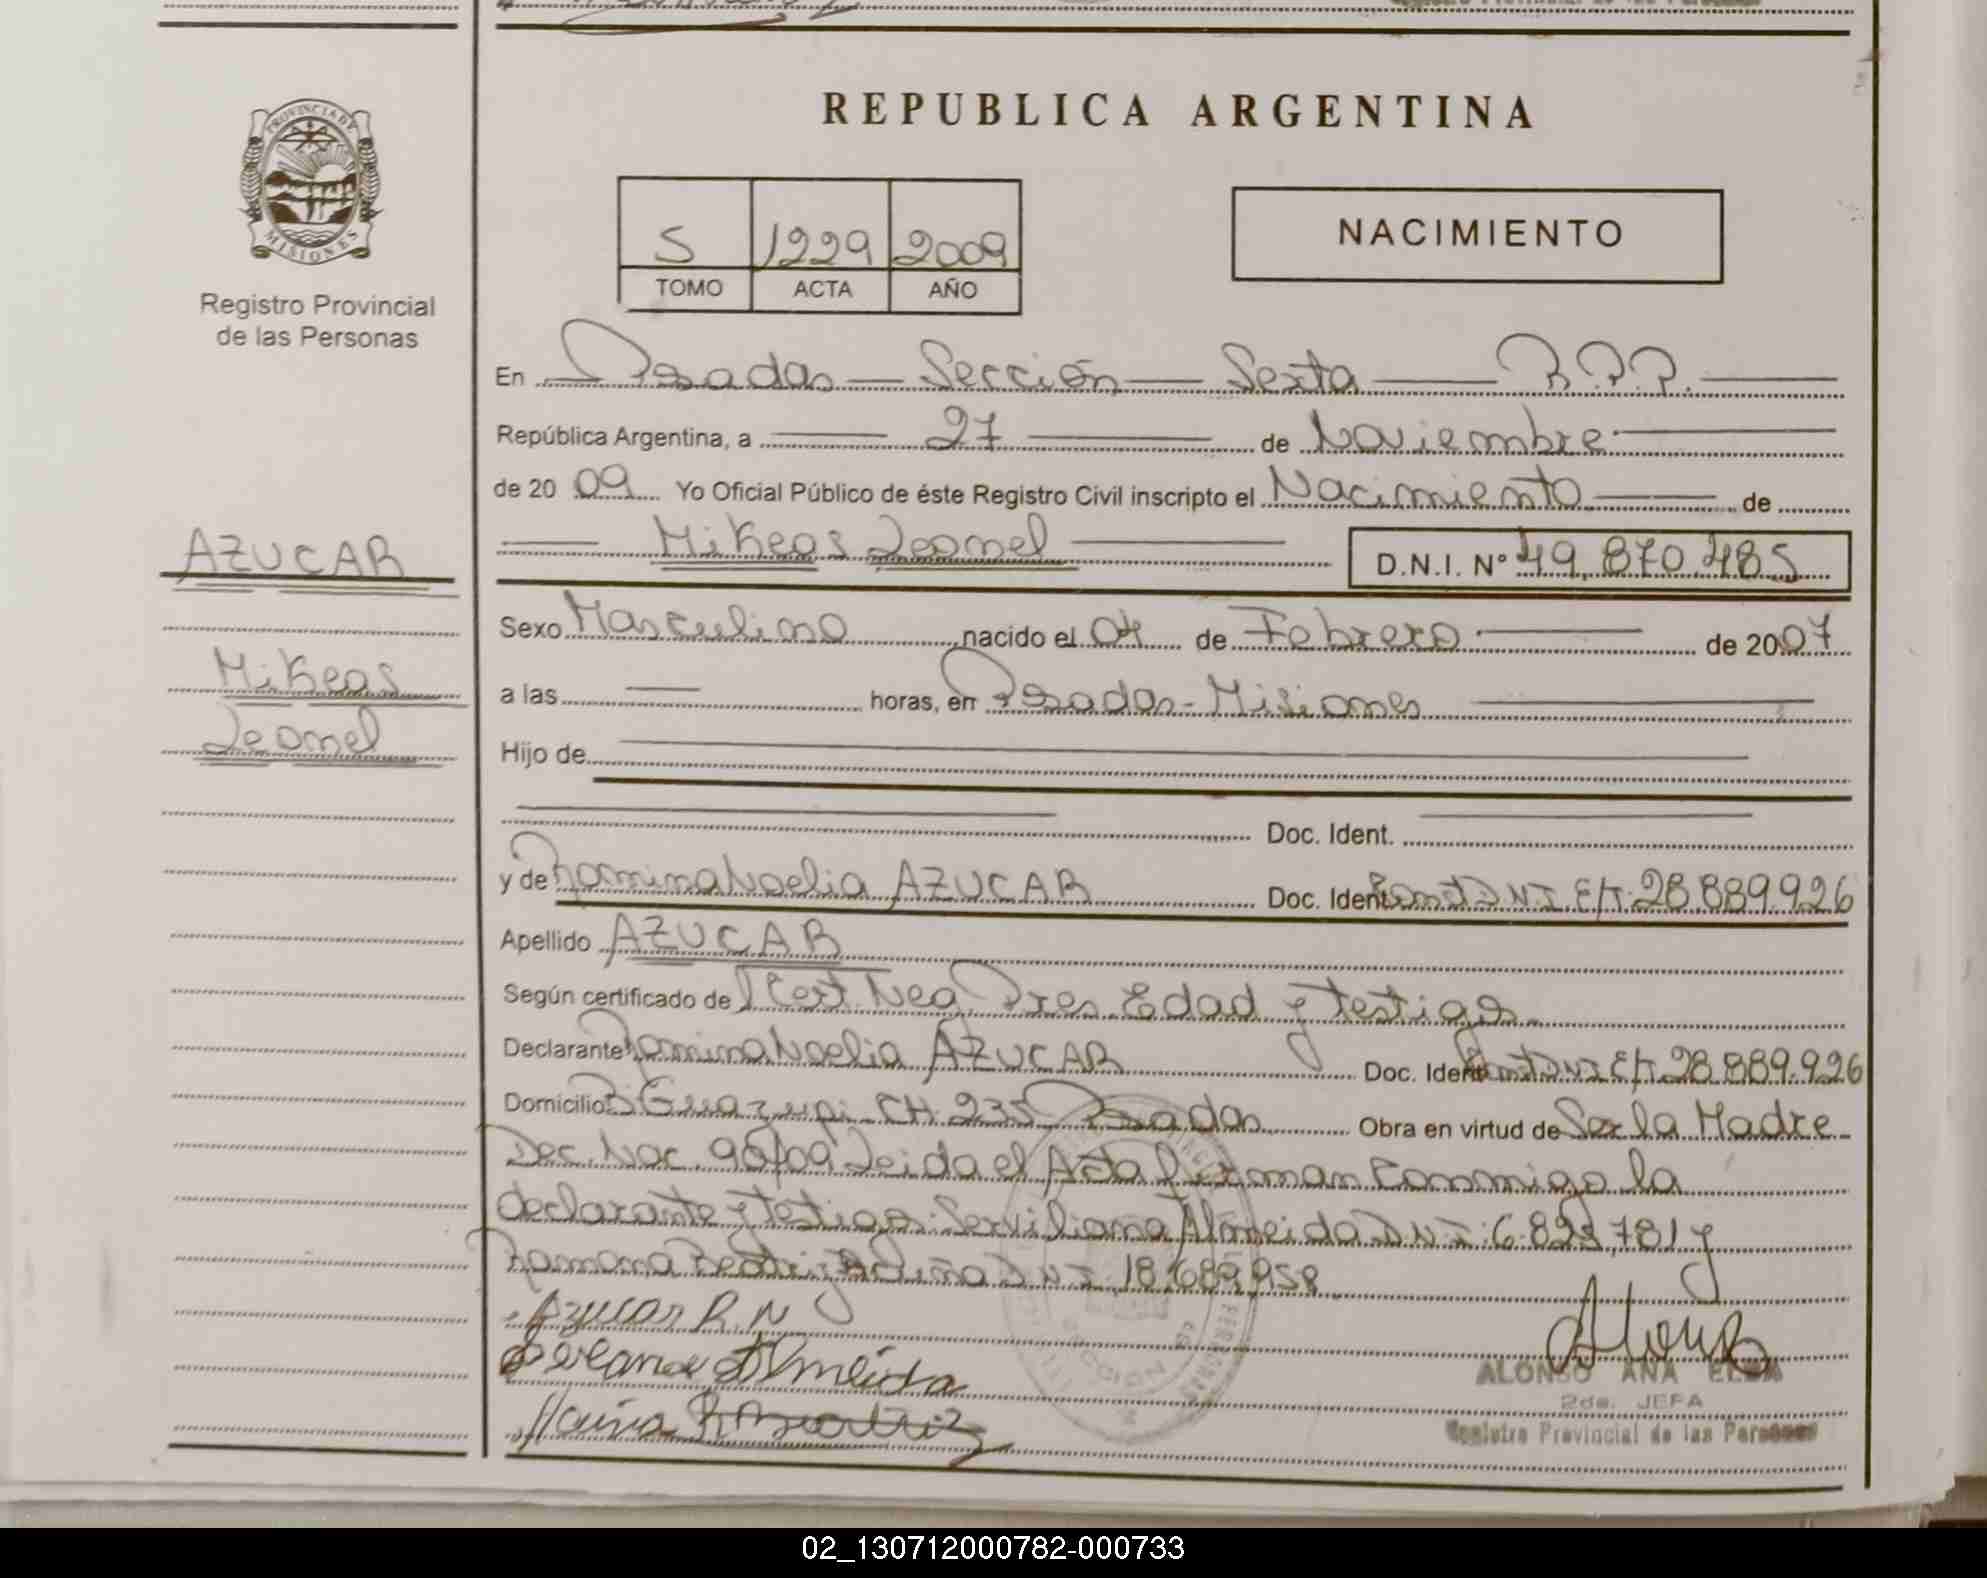 REPUBLICA ARGENTINA
PROVINCIA DE
MISIONES
Registro Provincial
de las Personas
5 1229 2009
TOMO ACTA AÑO
NACIMIENTO
En Posadas Sección Sexta R.P.P.
República Argentina, a 27 de Noviembre
de 20 09 Yo Oficial Público de éste Registro Civil inscripto el Nacimiento de
Mikeas Leonel D.N.I. Nº 49.870.485
AZUCAR
Mikeas
Leonel
Sexo Masculino nacido el 04 de Febrero de 2007
a las horas, en Posadas - Misiones
Hijo de
Doc. Ident.
y de Romina Noelia AZUCAR Doc. Ident. D.N.I. E/T. 28.889.926
Apellido AZUCAR
Según certificado de Cert. Neg. Pres. Edad y testigos
Declarante Romina Noelia AZUCAR Doc. Ident. D.N.I. E/T. 28.889.926
Domicilio CH. 235 Posadas Obra en virtud de Ser la Madre
Dec. Nac. 90/09 Leida el Acta firman conmigo la
declarante y testigos: Serviliana Almeida D.N.I: 6.828.781 y
Ramona Beatriz D.N.I. 18.689.958
Azucar R. N
Almeida
ALONSO ANA ELBA
2da. JEFA
Registro Provincial de las Personas
02_130712000782-000733